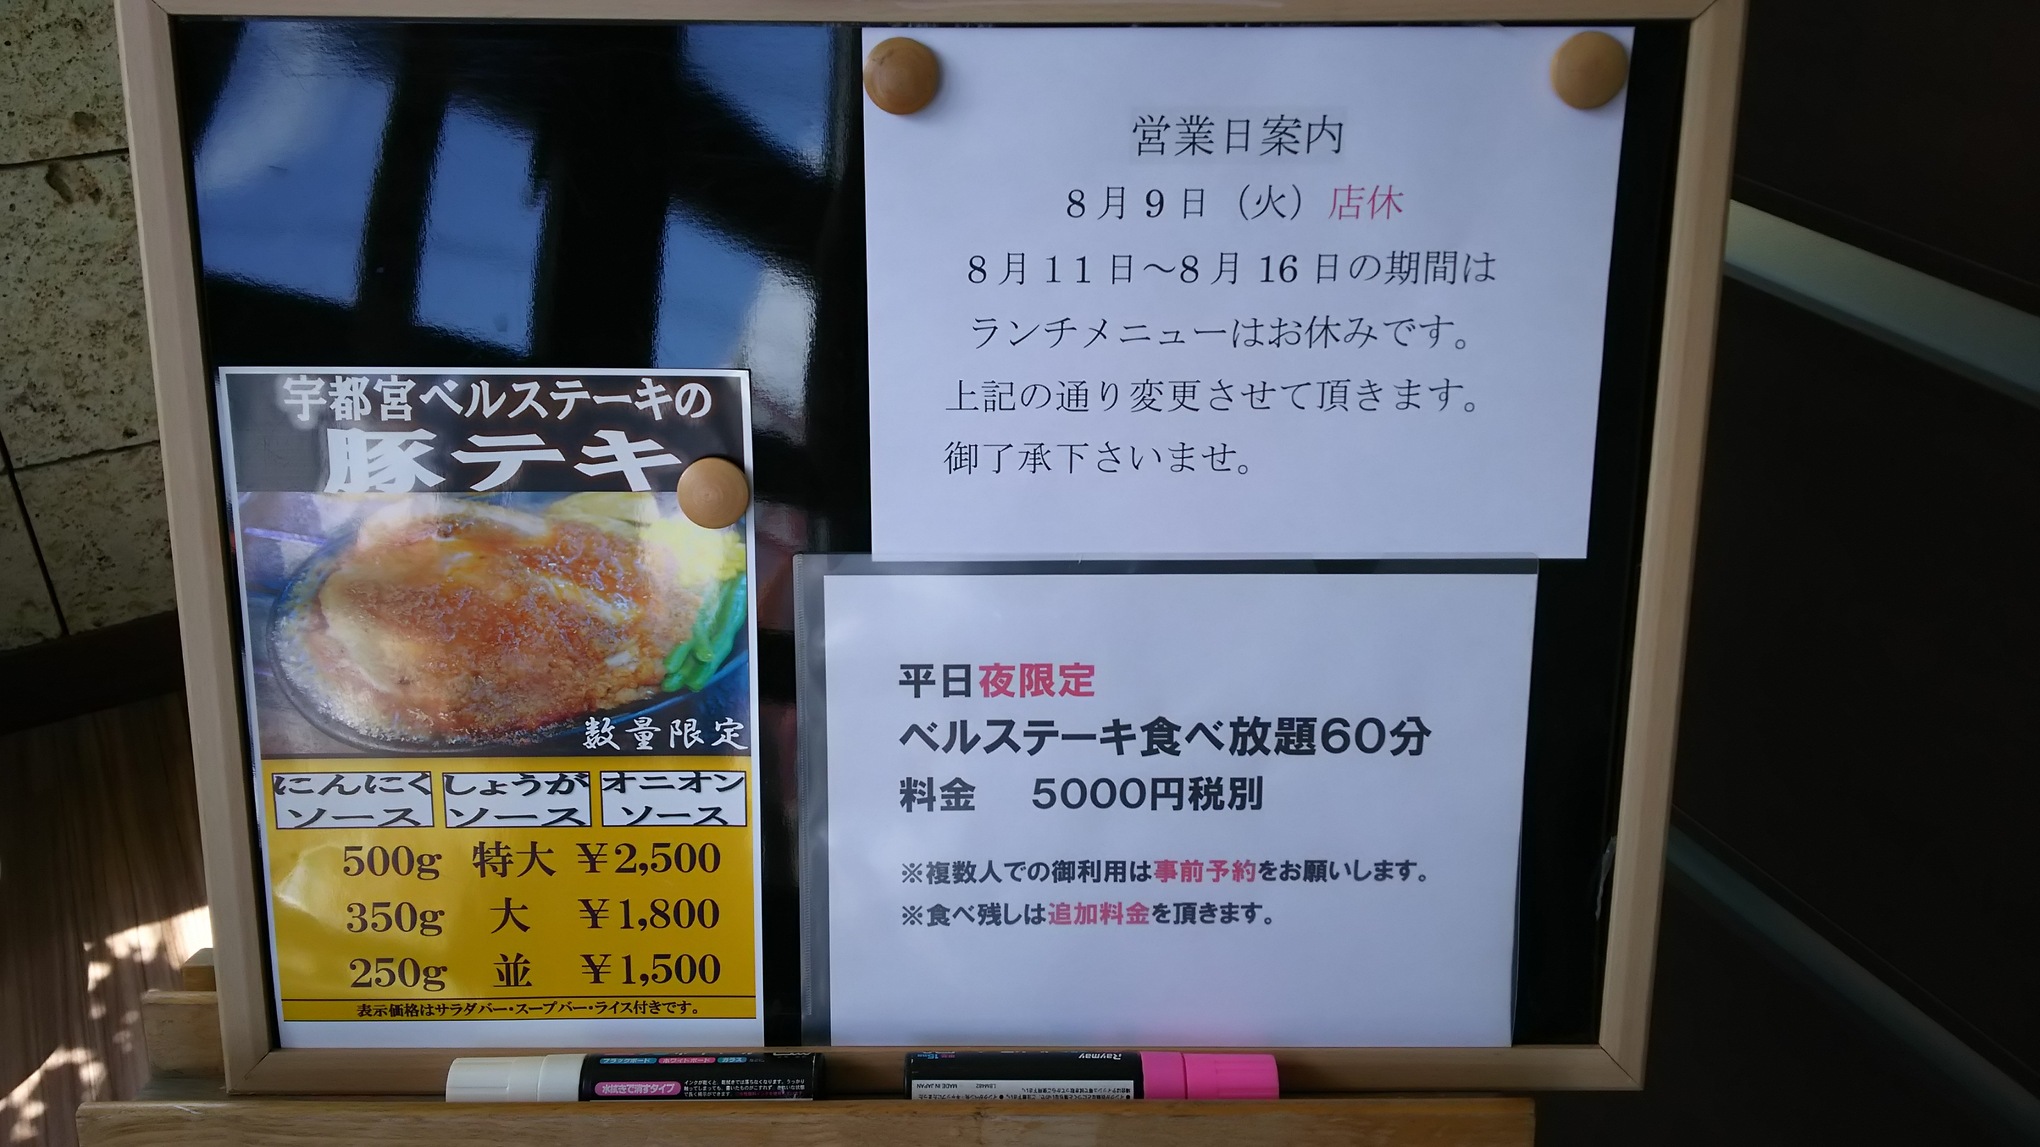 営業日案内
8月9日（火）店休
8月11日～8月16日の期間は
ランチメニューはお休みです。
上記の通り変更させて頂きます。
御了承下さいませ。
宇都宮ベルステーキの
豚テキ
数量限定
にんにく
ソース
しょうが
ソース
オニオン
ソース
500g 特大 ￥2,500
350g 大 ￥1,800
250g 並 ￥1,500
表示価格はサラダバー・スープバー・ライス付きです。
平日夜限定
ベルステーキ食べ放題60分
料金 5000円税別
※複数人での御利用は事前予約をお願いします。
※食べ残しは追加料金を頂きます。
ブラックボード ホワイトボード ガラス
水拭きで消すタイプ
Raymay
MADE IN JAPAN